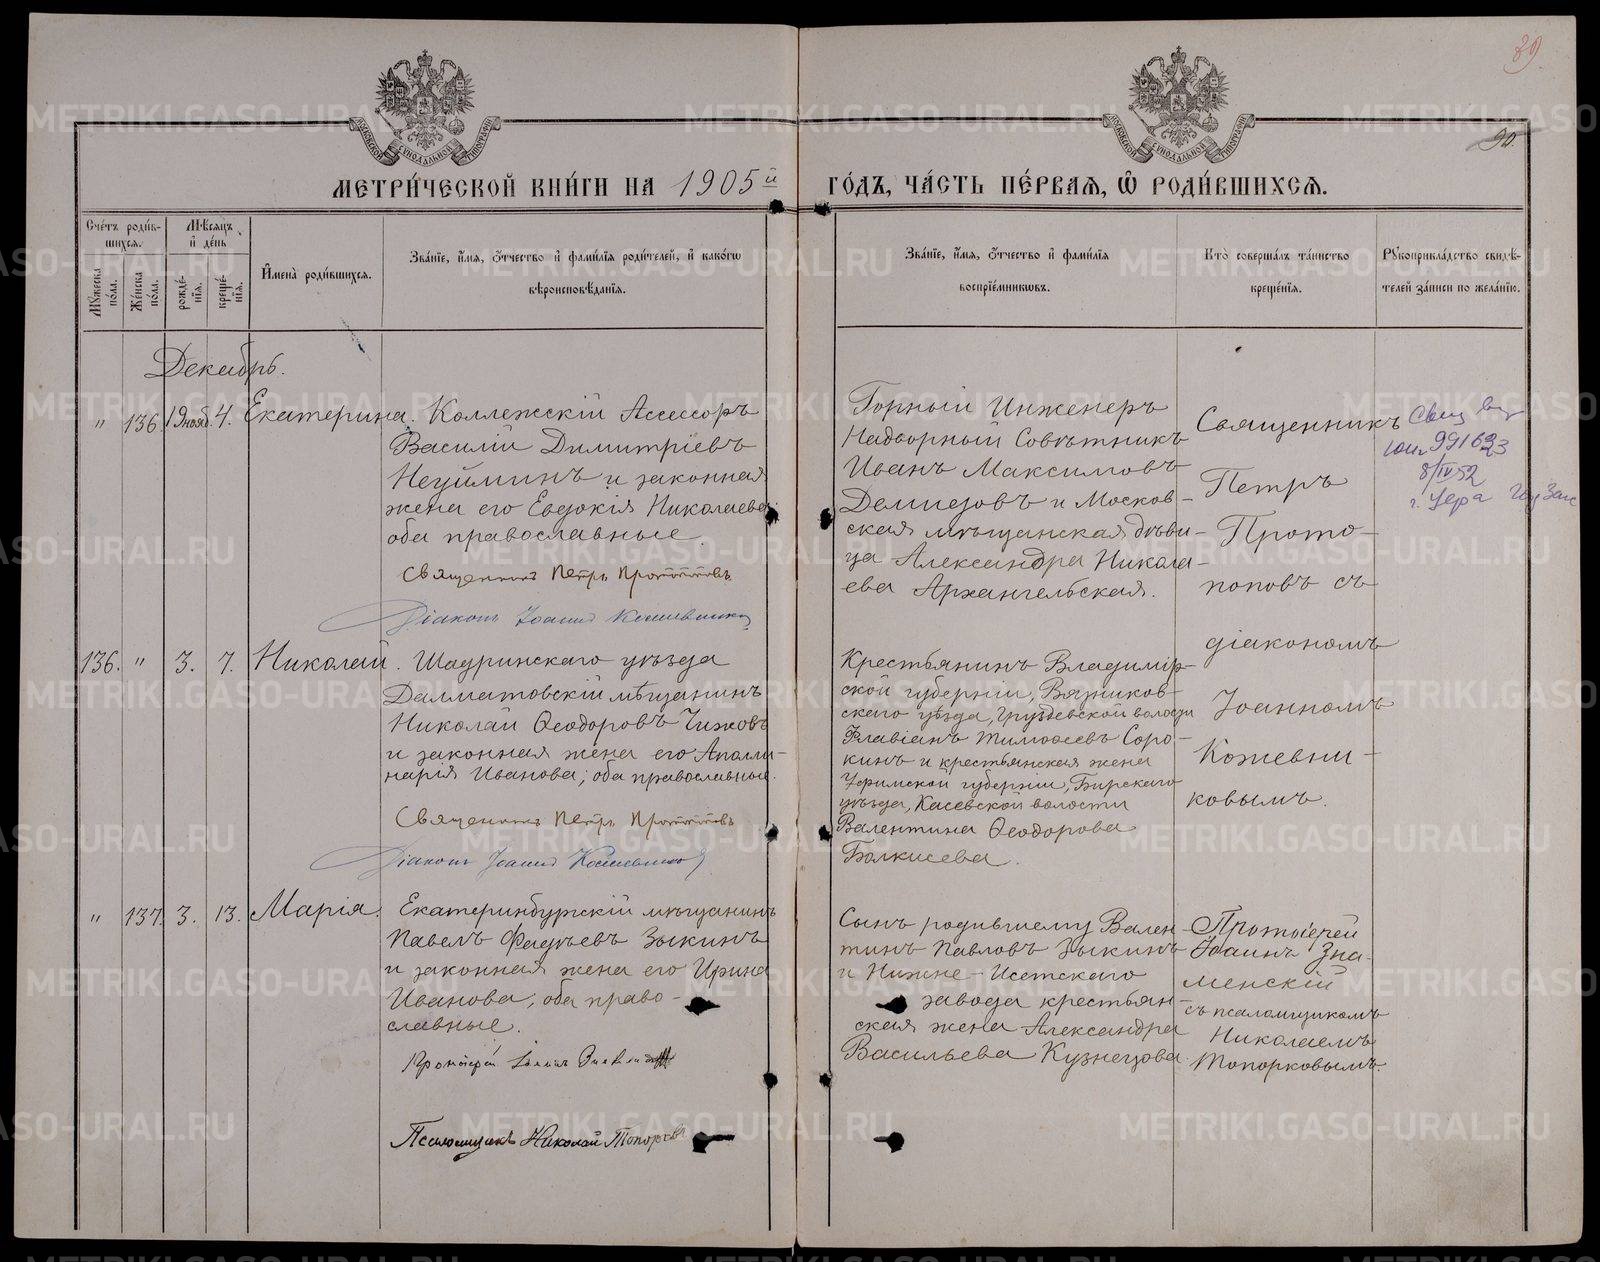 89.
90.
МОСКОВСКОЙ СѴНОДАЛЬНОЙ ТИПОГРАФІИ
МОСКОВСКОЙ СѴНОДАЛЬНОЙ ТИПОГРАФІИ
МЕТРИ́ЧЕСКОЙ КНИ́ГИ НА 1905й ГО́ДЪ, ЧА́СТЬ ПЕ́РВАѦ, Ѡ РОДИ́ВШИХСѦ.
Сче́тъ роди́в-
шихсѧ.
Мꙋ́жеска по́ла.
Же́нска по́ла.
Мѣ́сѧцъ и де́нь
рожде́-нїѧ.
креще́-нїѧ.
И҆мена̀ роди́вшихсѧ.
Зва́нїе, и҆́мѧ, ѻ҆́тчество и҆ фами́лїѧ роди́телей, и҆ како́гѡ
вѣроисповѣ́данїѧ.
Зва́нїе, и҆́мѧ, ѻ҆́тчество и҆ фами́лїѧ
воспрїе́мникѡвъ.
Кто̀ соверша́лъ та́инство
креще́нїѧ.
Рꙋкоприкла́дство свидѣ́-
телей за́писи по жела́нїю.
Декабрь.
" 136. 19 нояб. 4. Екатерина. Коллежскій Ассессоръ
Василій Димитріевъ
Неуйминъ и законная
жена его Евдокія Николаева
оба православные.
Священникъ Петръ Протопоповъ
Діаконъ Іоаннъ Кожевниковъ
Горный Инженеръ
Надворный Совѣтникъ
Иванъ Максимовъ
Демидовъ и Москов-
ская мѣщанская дѣви-
ца Александра Никола-
ева Архангельская.
Священникъ
Петръ
Прото-
поповъ съ
діакономъ
Іоанномъ
Кожевни-
ковымъ.
8/IV 52
136. " 3. 7. Николай. Шадринскаго уѣзда
Далматовскій мѣщанинъ
Николай Ѳеодоровъ Чижовъ
и законная жена его Аполли-
нарія Иванова; оба православные.
Священникъ Петръ Протопоповъ
Діаконъ Іоаннъ Кожевниковъ
Крестьянинъ Владимір-
ской губерніи, Вязников-
скаго уѣзда, Груздевской волости
Флавіанъ Тимоѳеевъ Соро-
кинъ и крестьянская жена
Уфимской губерніи, Бирскаго
уѣзда, Касевской волости
Валентина Ѳеодорова
" 137. 3. 13. Марія. Екатеринбургскій мѣщанинъ
Павелъ Фадѣевъ Зыкинъ
и законная жена его Ирина
Иванова; оба право-
славные.
Протоіерей Іоаннъ Знаменскій
Псаломщикъ Николай Топорковъ
Сынъ родившему Вален-
тинъ Павловъ Зыкинъ
и Нижне-Исетскаго
завода крестьян-
ская жена Александра
Васильева Кузнецова.
Протоіерей
Іоаннъ Зна-
менскій
съ псаломщикомъ
Николаемъ
Топорковымъ.
METRIKI.GASO-URAL.RU